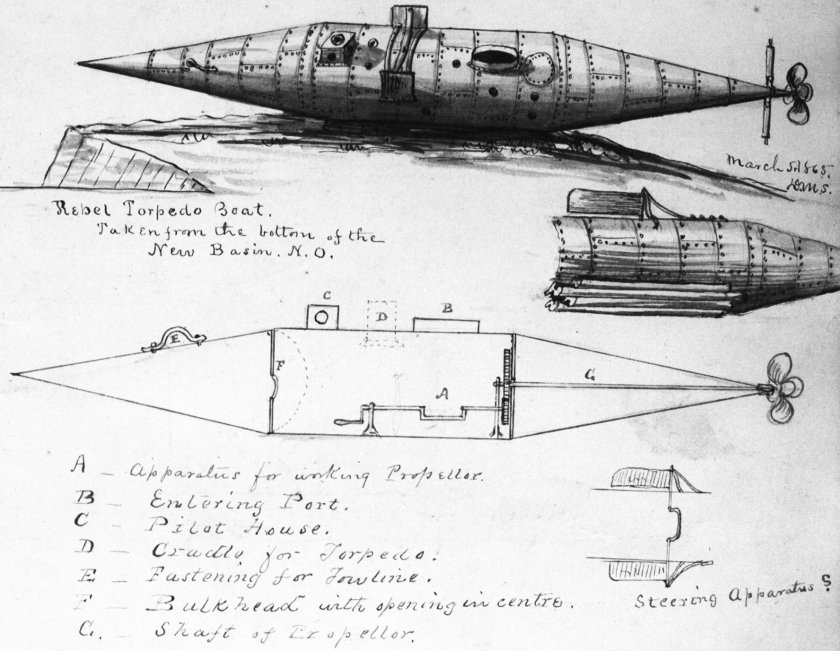 March 5. 1865.
Rebel Torpedo Boat.
Taken from the bottom of the
New Basin. N.O.
C
D
B
E
F
A
G
A — Apparatus for working Propellor.
B — Entering Port.
C — Pilot House.
D — Cradle for Torpedo.
E — Fastening for Towline.
F — Bulkhead with opening in centre.
G. — Shaft of Propellor.
Steering Apparatus